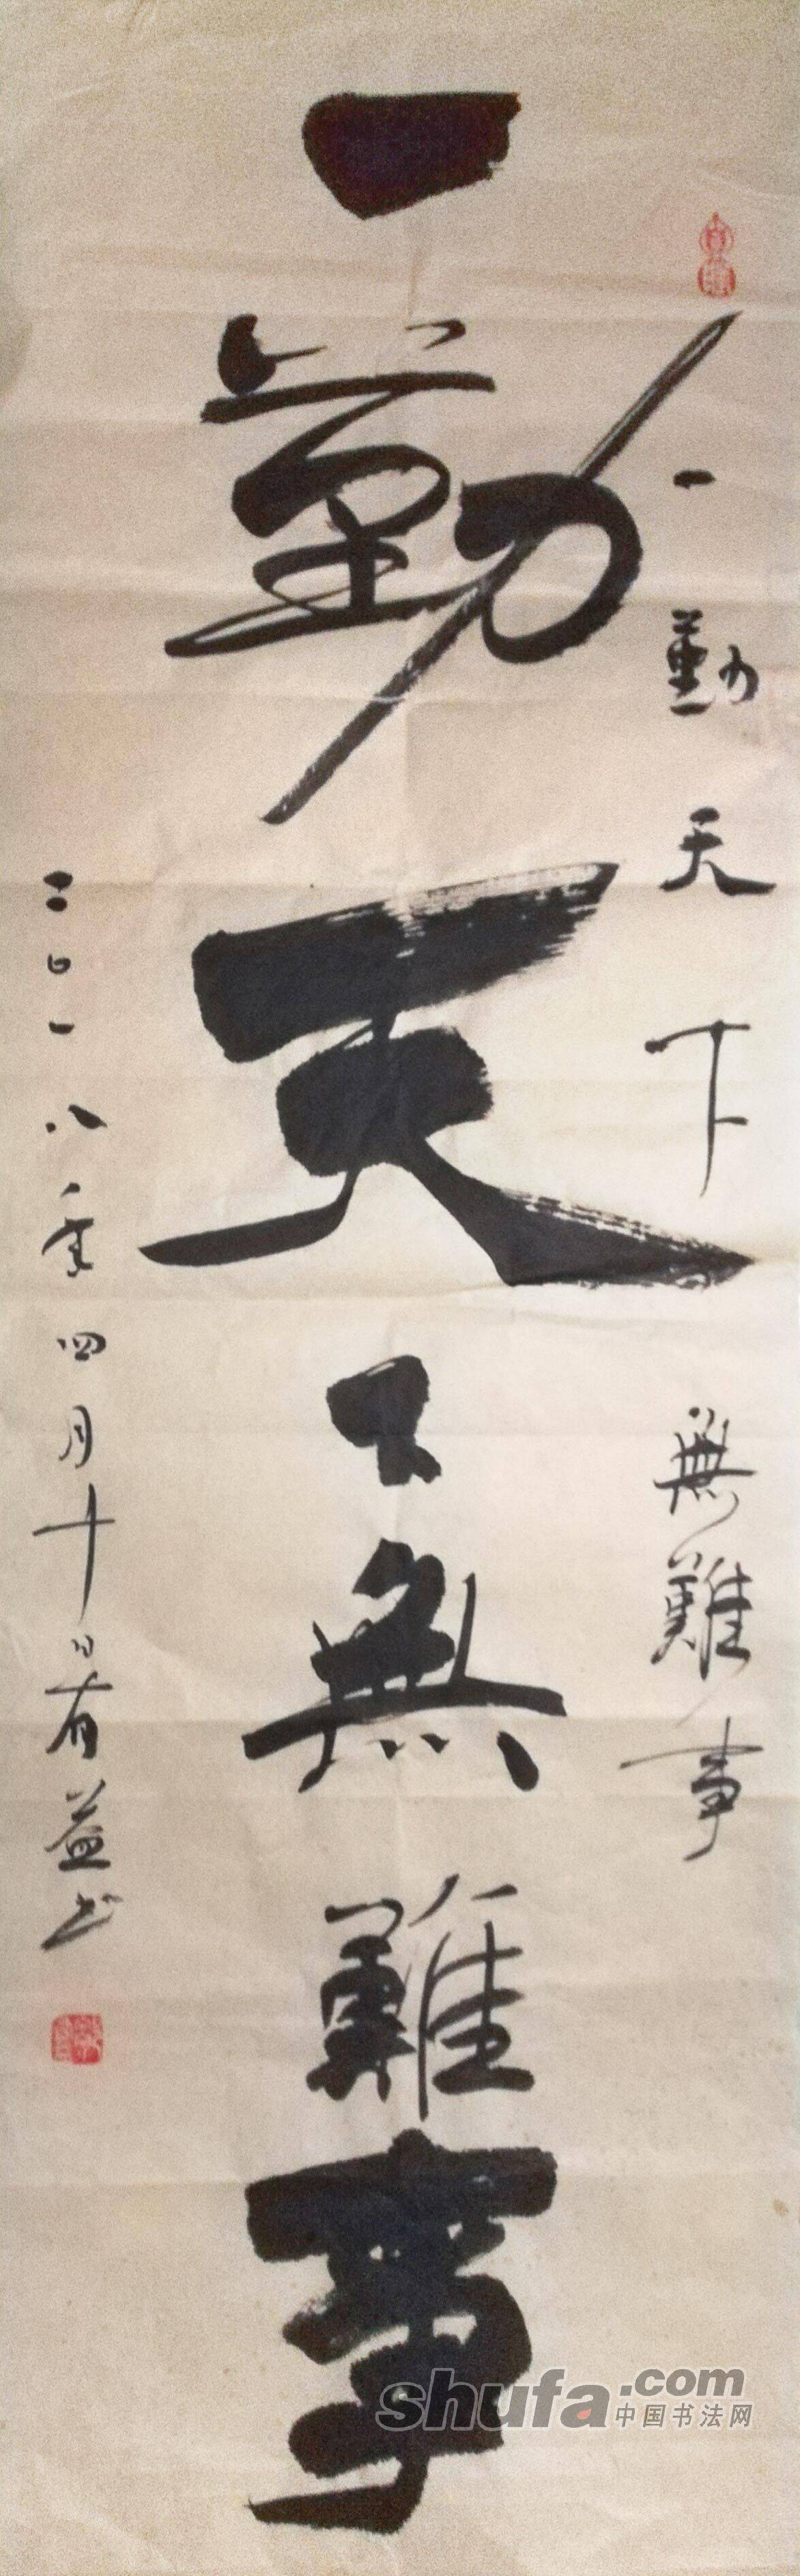 一勤天下無難事
一勤天下無難事
二〇一八年四月十日有益书
shufa.com
中国书法网